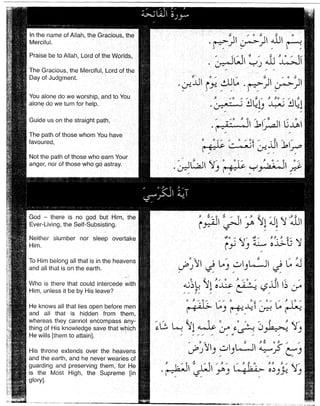 سُورَةُ الْفَاتِحَة
In the name of Allah, the Gracious, the
Merciful.
Praise be to Allah, Lord of the Worlds,
The Gracious, the Merciful, Lord of the
Day of Judgment.
You alone do we worship, and to You
alone do we turn for help.
Guide us on the straight path,
The path of those whom You have
favoured,
Not the path of those who earn Your
anger, nor of those who go astray.
بِسْمِ اللهِ الرَّحْمَنِ الرَّحِيمِ.
الْحَمْدُ لِلَّهِ رَبِّ الْعَالَمِينَ.
الرَّحْمَنِ الرَّحِيمِ. مَالِكِ يَوْمِ الدِّينِ.
إِيَّاكَ نَعْبُدُ وَإِيَّاكَ نَسْتَعِينُ.
اهْدِنَا الصِّرَاطَ الْمُسْتَقِيمَ.
صِرَاطَ الَّذِينَ أَنْعَمْتَ عَلَيْهِمْ
غَيْرِ الْمَغْضُوبِ عَلَيْهِمْ وَلَا الضَّالِّينَ.
آيَةُ الْكُرْسِي
God – there is no god but Him, the
Ever-Living, the Self-Subsisting.
Neither slumber nor sleep overtake
Him.
To Him belong all that is in the heavens
and all that is on the earth.
Who is there that could intercede with
Him, unless it be by His leave?
He knows all that lies open before men
and all that is hidden from them,
whereas they cannot encompass any-
thing of His knowledge save that which
He wills [them to attain].
His throne extends over the heavens
and the earth, and he never wearies of
guarding and preserving them, for He
is the Most High, the Supreme [in
glory].
اللهُ لَا إِلَهَ إِلَّا هُوَ الْحَيُّ الْقَيُّومُ
لَا تَأْخُذُهُ سِنَةٌ وَلَا نَوْمٌ
لَهُ مَا فِي السَّمَاوَاتِ وَمَا فِي الْأَرْضِ
مَن ذَا الَّذِي يَشْفَعُ عِنْدَهُ إِلَّا بِإِذْنِهِ
يَعْلَمُ مَا بَيْنَ أَيْدِيهِمْ وَمَا خَلْفَهُمْ
وَلَا يُحِيطُونَ بِشَيْءٍ مِنْ عِلْمِهِ إِلَّا بِمَا شَاءَ
وَسِعَ كُرْسِيُّهُ السَّمَاوَاتِ وَالْأَرْضَ
وَلَا يَؤُودُهُ حِفْظُهُمَا وَهُوَ الْعَلِيُّ الْعَظِيمُ.